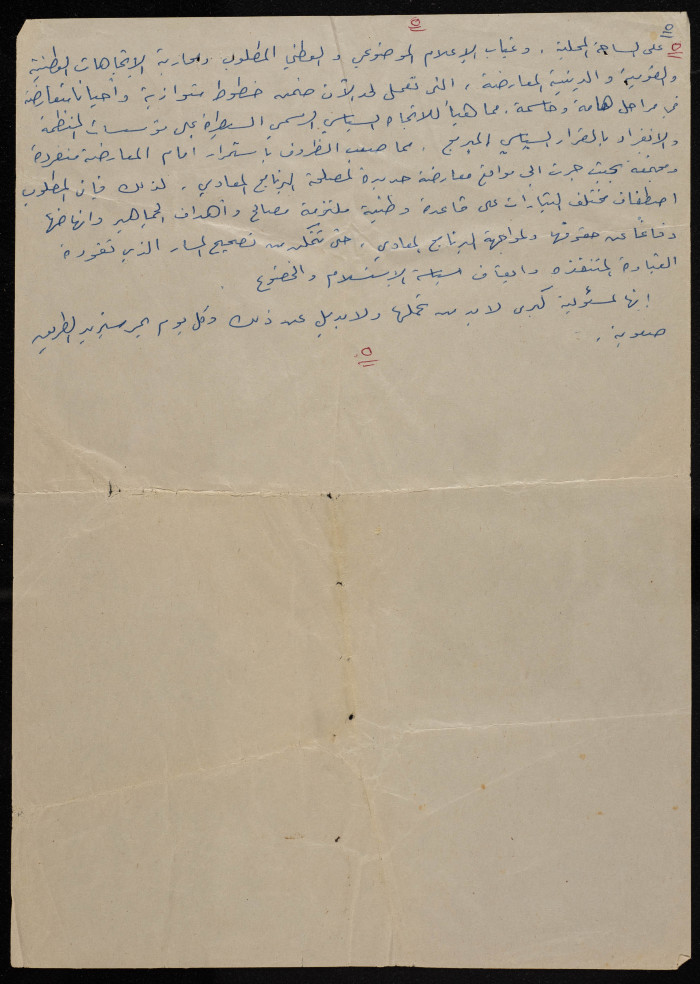 ٥
١٥
على الساحة المحلية . وغياب الإعلام الموضوعي والوطني المطلوب ومحاربة الاتجاهات الوطنية
والقومية والدينية المعارضة ، التي تعمل لحد الآن ضمن خطوط متوازية وأحيانا متعارضة
في مراحل هامة وحاسمة . مما هيأ للاتجاه السياسي الرسمي السيطرة على مؤسسات المنظمة
والانفراد بالقرار السياسي المبرمج . مما صعب الظروف باستمرار أمام المعارضة منفردة
ومجتمعة بحيث جرت الى مواقع معارضة جديدة لمصلحة البرنامج المعادي . لذلك فإن المطلوب
اصطفاف مختلف التيارات على قاعدة وطنية ملتزمة مصالح وأهداف الجماهير وانهاضها
دفاعًا عن حقوقها ولمواجهة البرنامج المعادي . حتى تتمكن من تصحيح المسار الذي تقوده
القيادة المتنفذه وايقاف سياسة الاستسلام والخضوع
إنها لمسؤولية كبرى لا بد من تحملها ولا بديل عن ذلك وكل يوم يمر سيزيد الطريق
صعوبة .
٥